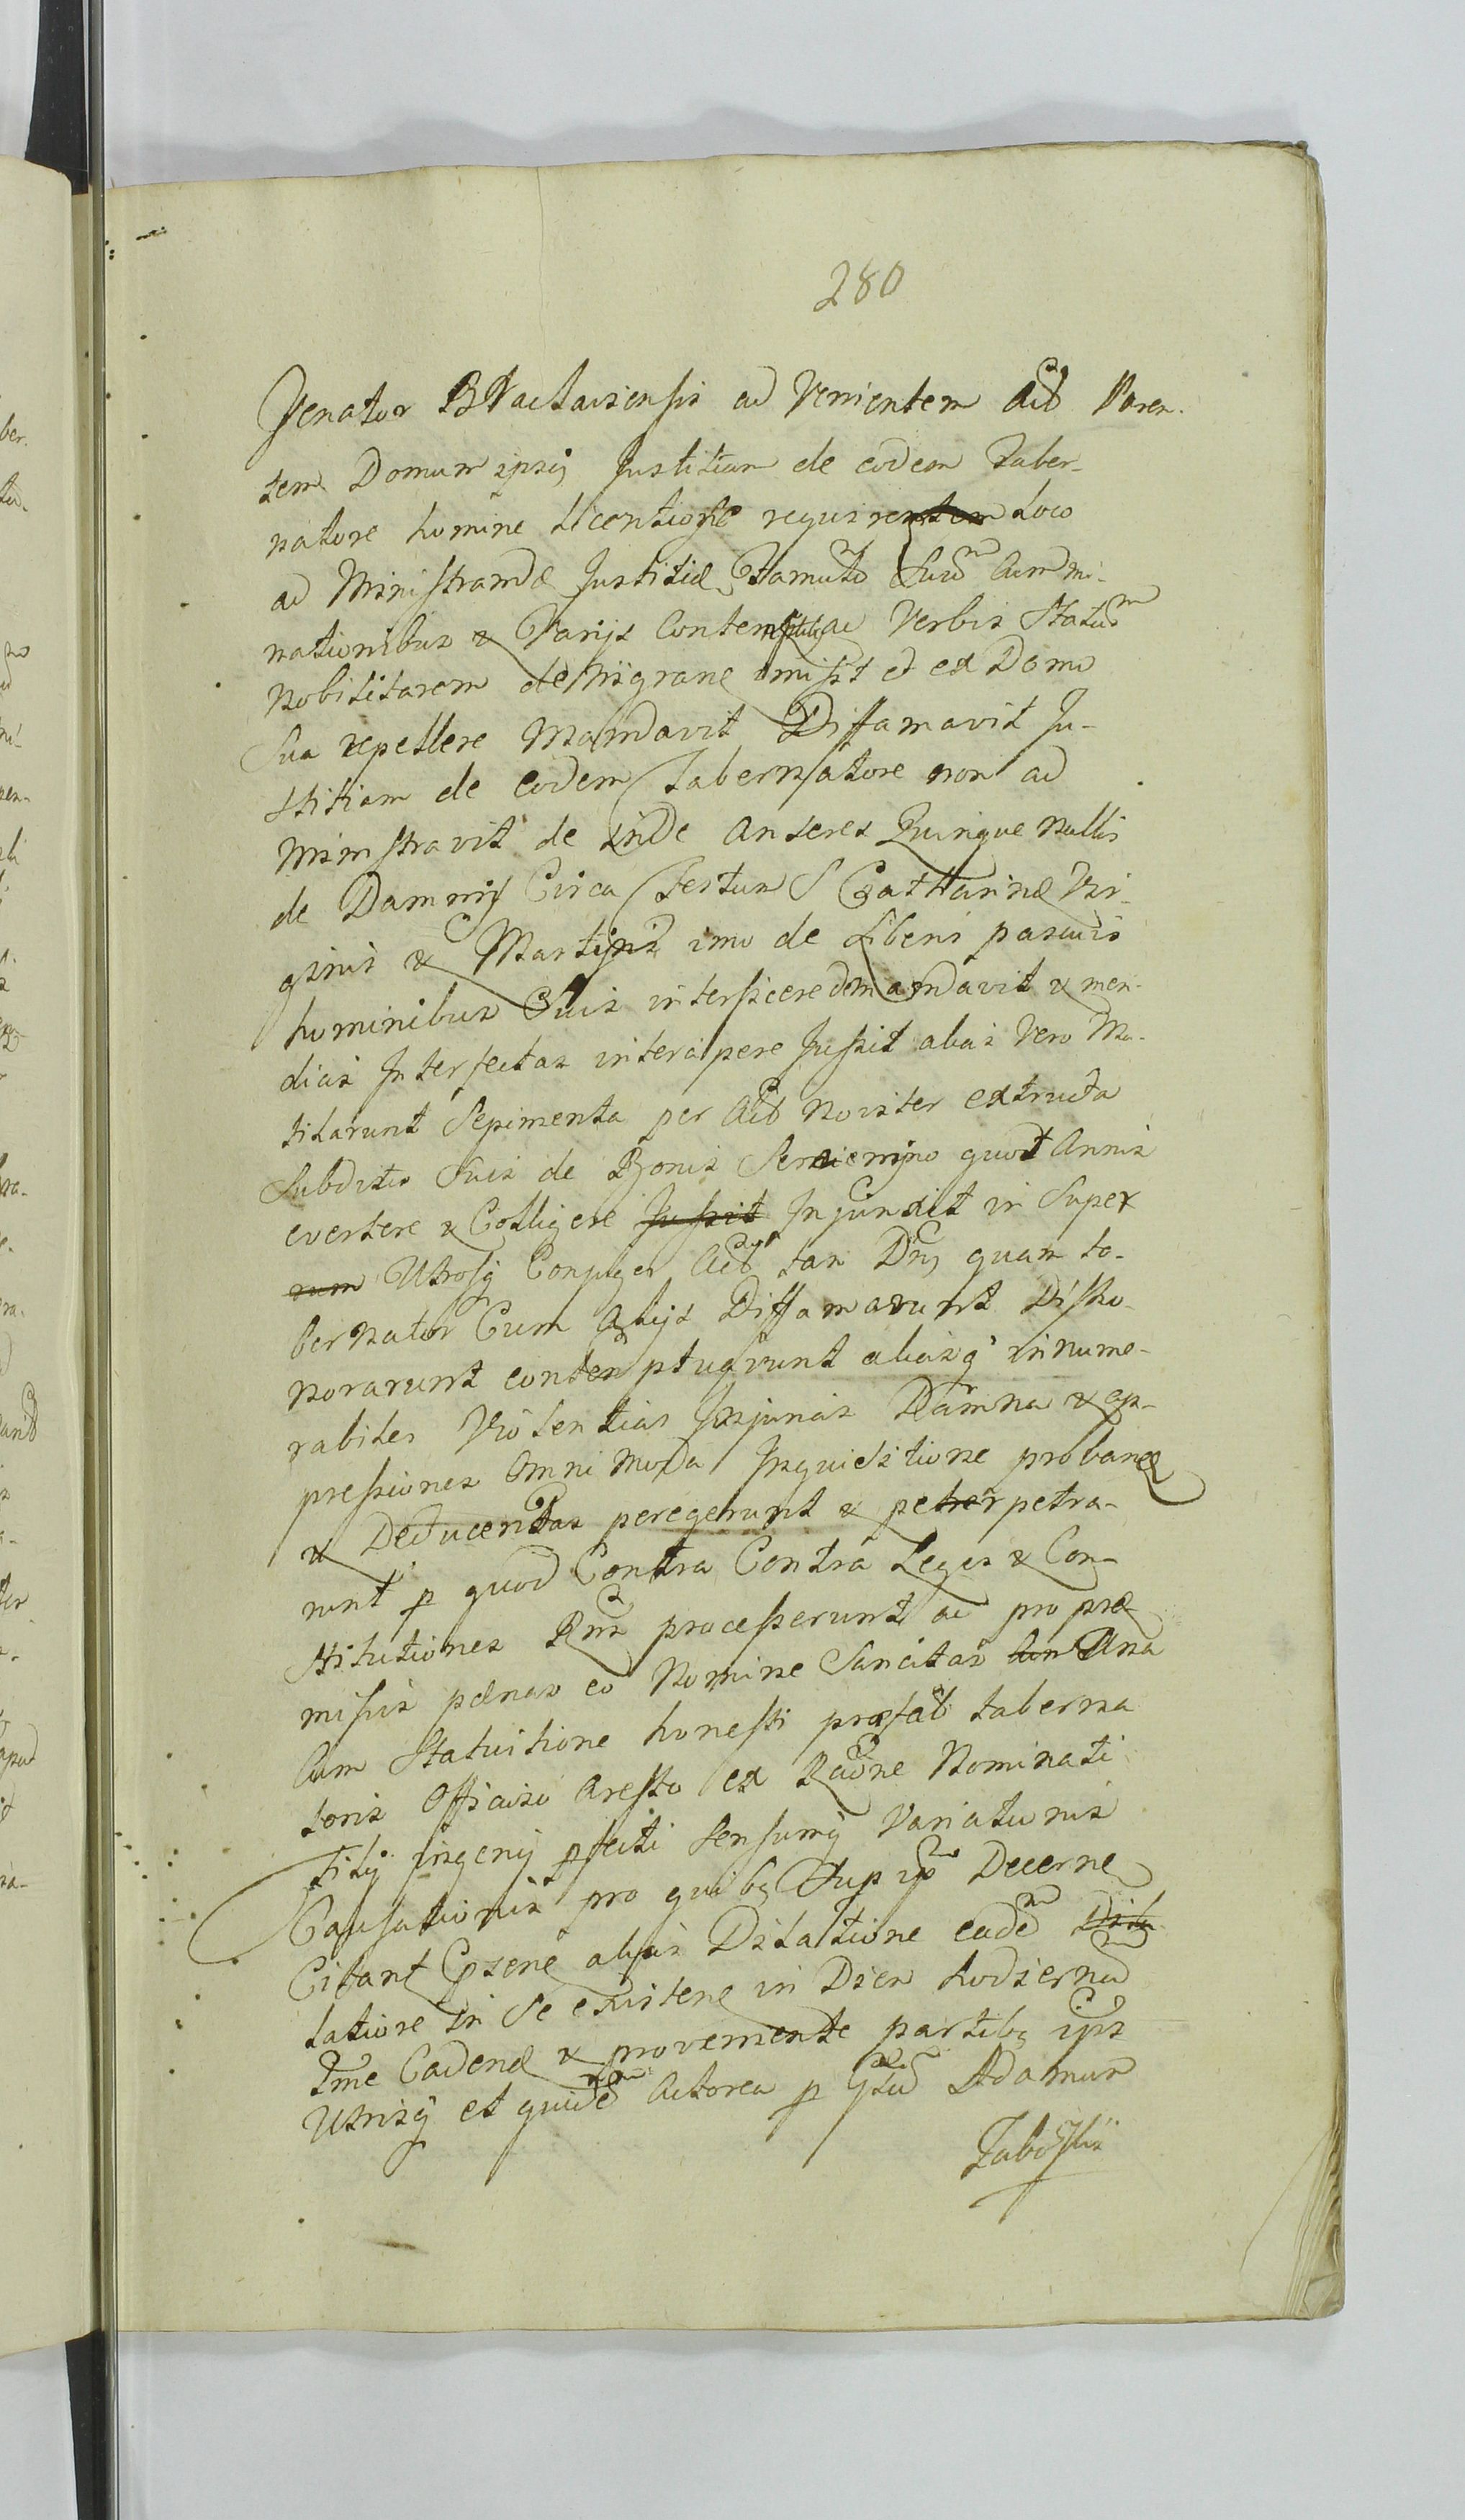 280
Venator Bractaviensis ad Venientem Act Paren-
tem Domum ipsiq Justitiam de eodem Taber-
natore homine licentiose requirentem Loco
ad Ministrandæ Justitiæ Famulo Suũ Cum mi-
nationibus & Varijs Contemptibq ac Verbis Statũ
Nobilitarem denigrane misit et ex Domo
Sua repellere Mandavit Diffamavit Ju-
stitiam de eodem Tabernatore non ad
ministravit de inde Anseres Quinque nullis
de Damnis Circa Festum S Catharinæ Vir-
ginis & Martiris imo de Liberis pascuis
hominibus Suis interficere demandavit &
dias Interfectas intercipere Jussit alias Vero Mu-
tilarunt Sepimenta per Act Noviter extructa
Subditis Suis de Bonis quot Annis
evertere & Colligere Jussit Injunxit in Super
rum Utrosq Conjuges Act tam Dnq quam ta-
bernator Cum Alijs Diffamarunt Disho-
norarunt contemptuarunt aliasq innume-
rabiles Violentias Injurias Damna & op-
pressiones Omni moda Inquisitione probane
& Deducendas peregerunt & perpetra-
runt p quod Contra Contra Leges & Con-
stitutiones Rni processerunt ac pro præ
missis pænas eo Nomine Sancitas Una
Cum Statuitione honesti præfat taberna
toris Officioso Aresto ex Raõne Nominati
filij ingenij pfecti Sensumq Variationis
Causationis pro quibq Sup ip Decerne
Citant alias Dilatione eadẽ Dila
latione in Se existene in Diem hodiernã
Tme Cadenæ & provenientе partibq ips
Utrisq et quidẽ Actorea p Gsũ Adamum
Zaboĩski